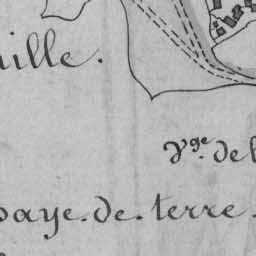 ille.
Vge. de l
paye. de. terre.